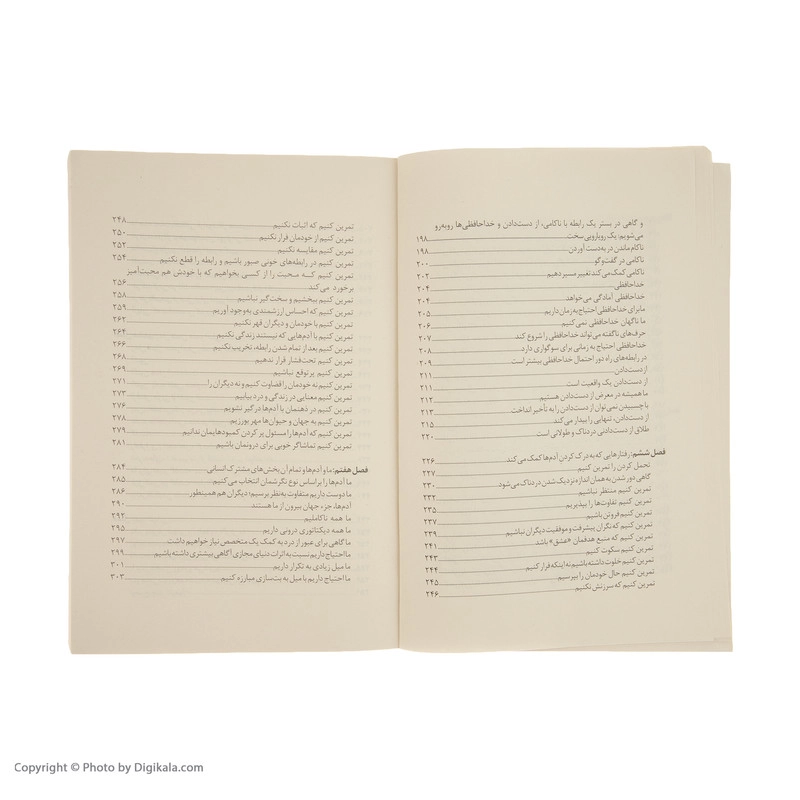 و گاهی در بستر یک رابطه با ناکامی، از دست‌دادن و خداحافظی‌ها روبه‌رو
می‌شویم: یک رویارویی سخت ۱۹۸
ناکام ماندن در به‌دست آوردن ۱۹۸
ناکامی در گفت‌وگو ۲۰۰
ناکامی کمک می‌کند تغییر مسیر دهیم ۲۰۲
خداحافظی ۲۰۴
خداحافظی آمادگی می‌خواهد ۲۰۴
ما برای خداحافظی احتیاج به زمان داریم ۲۰۵
ما ناگهان خداحافظی نمی‌کنیم ۲۰۶
حرف‌های ناگفته می‌تواند خداحافظی را شروع کند ۲۰۷
خداحافظی احتیاج به زمانی برای سوگواری دارد ۲۰۸
در رابطه‌های راه دور احتمال خداحافظی بیشتر است ۲۰۹
از دست‌دادن ۲۱۱
از دست‌دادن یک واقعیت است ۲۱۱
ما همیشه در معرض از دست‌دادن هستیم ۲۱۲
با چسبیدن نمی‌توان از دست‌دادن را به تأخیر انداخت ۲۱۳
از دست‌دادن، تنهایی را بیدار می‌کند ۲۱۵
طلاق از دست‌دادنی دردناک و طولانی است ۲۲۰
فصل ششم: رفتارهایی که به درک کردن آدم‌ها کمک می‌کند ۲۲۶
تحمل کردن را تمرین کنیم ۲۲۷
گاهی دور شدن به همان اندازه نزدیک شدن دردناک می‌شود ۲۳۰
تمرین کنیم منتظر نباشیم ۲۳۲
تمرین کنیم تفاوت‌ها را بپذیریم ۲۳۵
تمرین کنیم فروتن باشیم ۲۳۷
تمرین کنیم که نگران پیشرفت و موفقیت دیگران نباشیم ۲۳۹
تمرین کنیم که منبع هدفمان «عشق» باشد ۲۴۱
تمرین کنیم سکوت کنیم ۲۴۳
تمرین کنیم خلوت داشته باشیم نه اینکه فرار کنیم ۲۴۴
تمرین کنیم حال خودمان را بپرسیم ۲۴۵
تمرین کنیم که سرزنش نکنیم ۲۴۶
تمرین کنیم که اثبات نکنیم ۲۴۸
تمرین کنیم از خودمان فرار نکنیم ۲۵۰
تمرین کنیم مقایسه نکنیم ۲۵۲
تمرین کنیم در رابطه‌های خوبی صبور باشیم و رابطه را قطع نکنیم ۲۵۴
تمرین کنیم که محبت را از کسی بخواهیم که با خودش هم محبت‌آمیز
برخورد می‌کند ۲۵۶
تمرین کنیم ببخشیم و سخت‌گیر نباشیم ۲۵۸
تمرین کنیم که احساس ارزشمندی به‌وجود آوریم ۲۵۹
تمرین کنیم با خودمان و دیگران قهر نکنیم ۲۶۲
تمرین کنیم با آدم‌هایی که نیستند زندگی نکنیم ۲۶۴
تمرین کنیم بعد از تمام شدن رابطه، تخریب نکنیم ۲۶۶
تمرین کنیم تحت‌فشار قرار ندهیم ۲۶۸
تمرین کنیم پرتوقع نباشیم ۲۶۹
تمرین کنیم نه خودمان را قضاوت کنیم و نه دیگران را ۲۷۱
تمرین کنیم معنایی در زندگی و درد بیابیم ۲۷۳
تمرین کنیم در ذهنمان با آدم‌ها درگیر نشویم ۲۷۶
تمرین کنیم به جهان و حیوان‌ها مهر بورزیم ۲۷۸
تمرین کنیم که آدم‌ها را مسئول پر کردن کمبودهایمان ندانیم ۲۷۹
تمرین کنیم تماشاگر خوبی برای درونمان باشیم ۲۸۱
فصل هفتم: ما و آدم‌ها و تمام آن بخش‌های مشترک انسانی ۲۸۴
ما آدم‌ها را براساس نوع نگرشمان انتخاب می‌کنیم ۲۸۵
ما دوست داریم متفاوت به‌نظر برسیم؛ دیگران هم همینطور ۲۸۶
آدم‌ها، جزء جهان بیرون از ما هستند ۲۹۰
ما همه ناکاملیم ۲۹۲
ما همه دیکتاتوری درونی داریم ۲۹۵
ما گاهی برای عبور از درد به کمک یک متخصص نیاز خواهیم داشت ۲۹۷
ما احتیاج داریم نسبت به اثرات دنیای مجازی آگاهی بیشتری داشته باشیم ۲۹۹
ما میل زیادی به تکرار داریم ۳۰۱
ما احتیاج داریم با میل به بت‌سازی مبارزه کنیم ۳۰۳
Copyright © Photo by Digikala.com